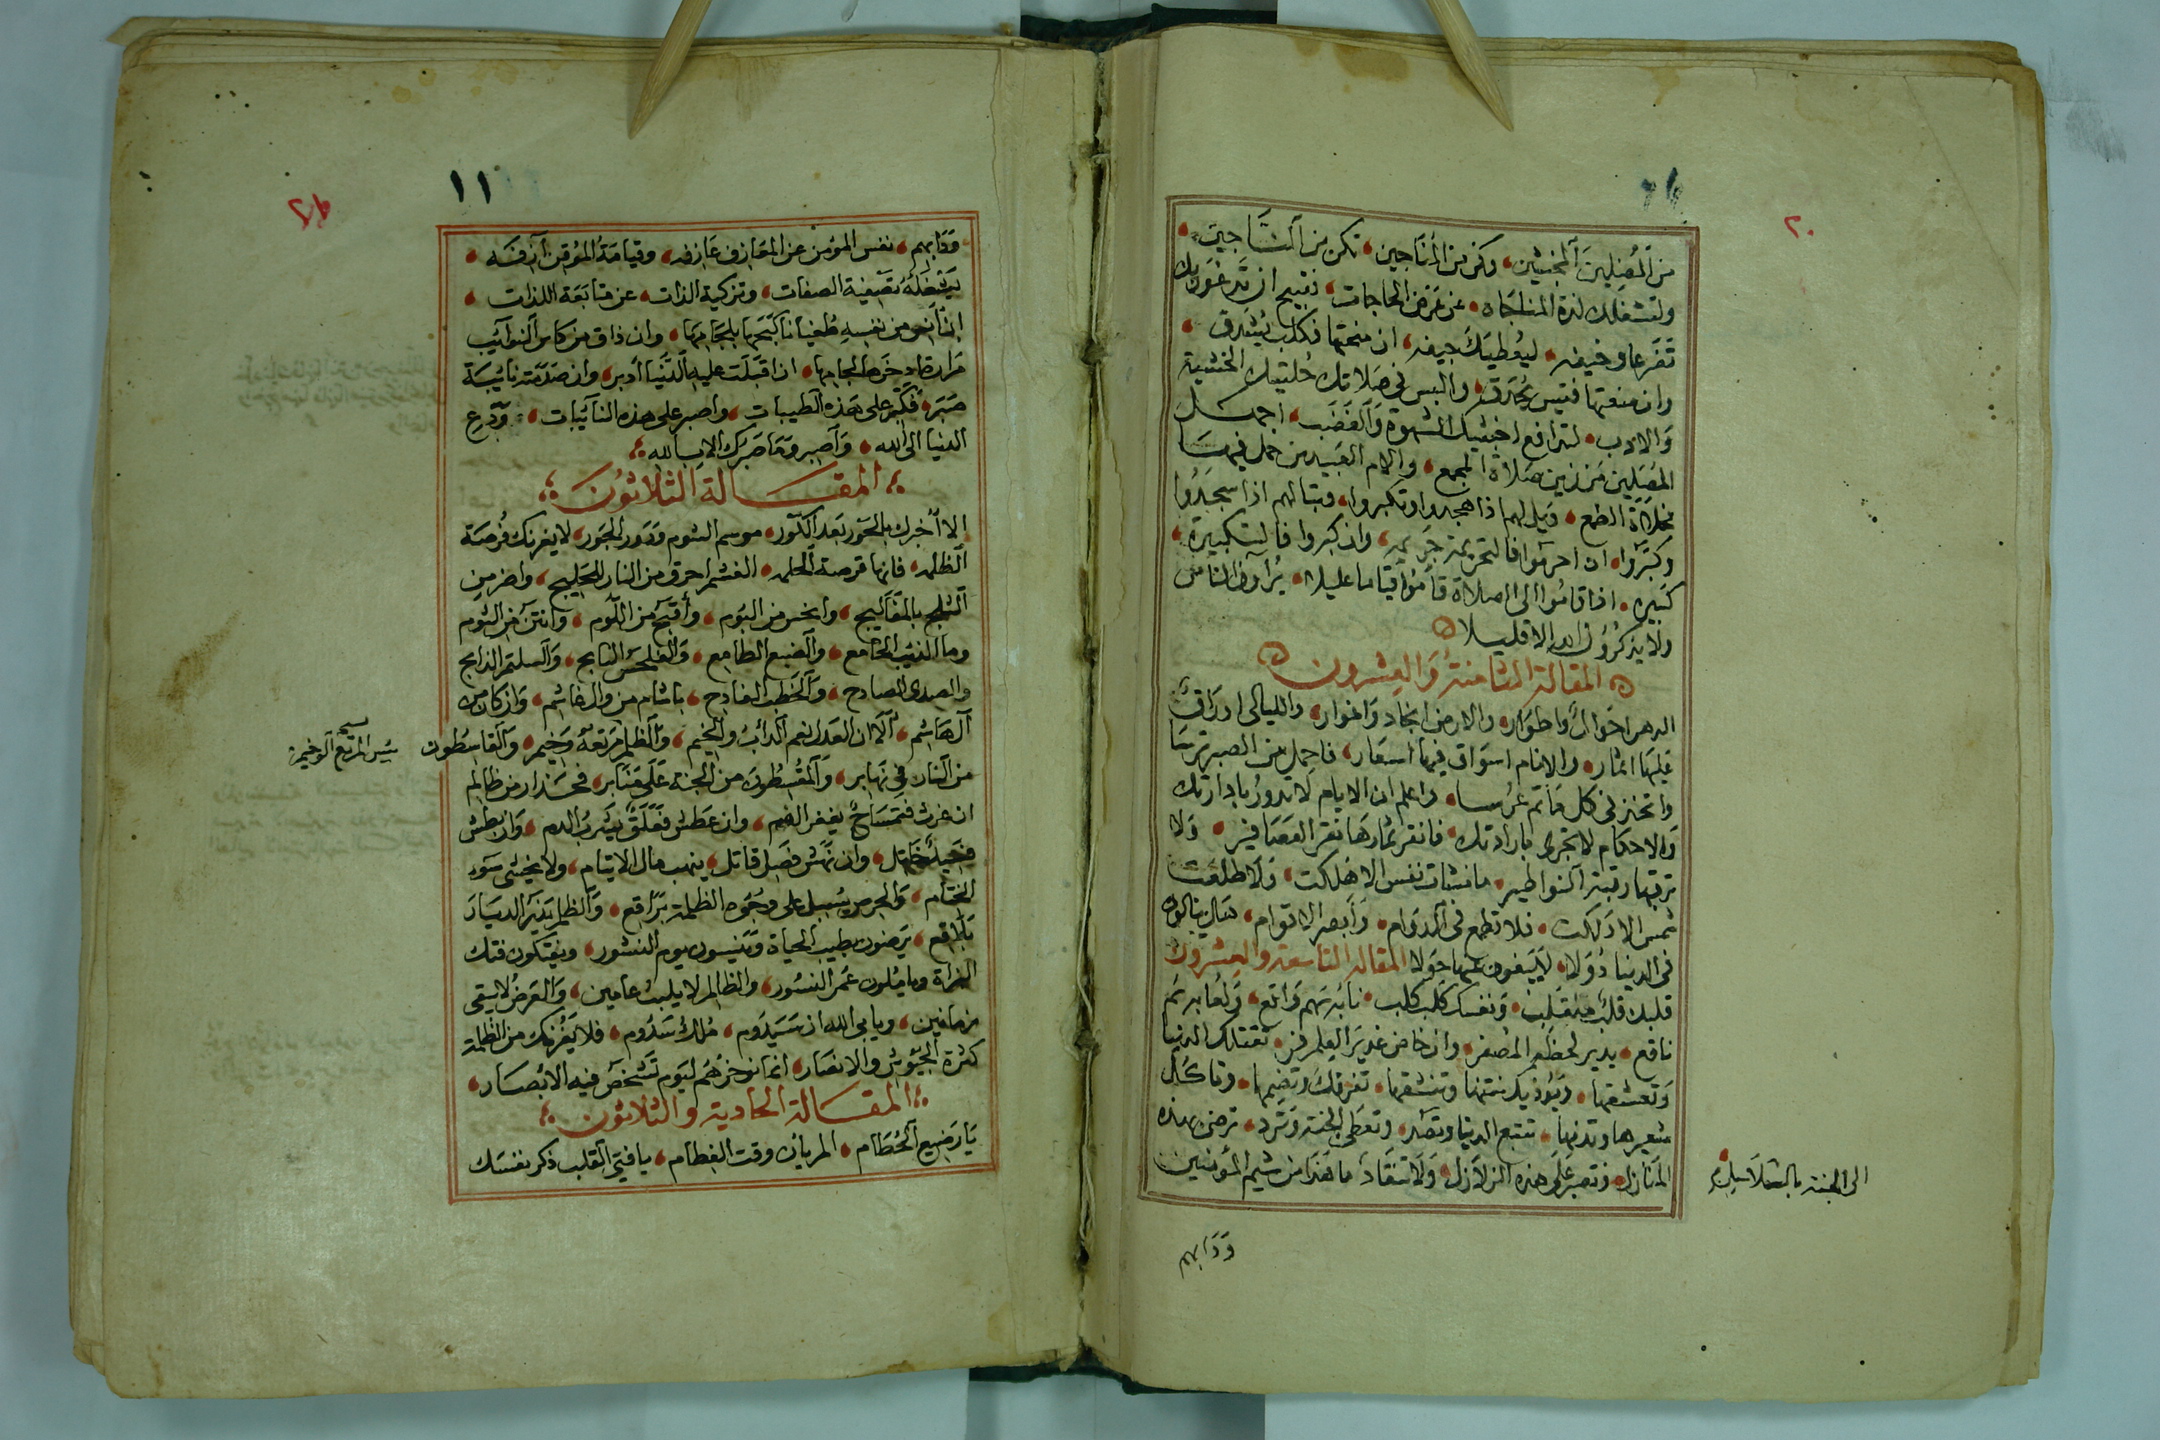 ٢٠
من المصلين المخبتين وكن من المناجين تكن من الناجين
ولتشغلك لذة المناجاه عن عرض الحاجات فقبيح ان تدعو ربك
تضرعا وخيفه ليعطيك جيفه ان منحتها فكلب يشرق
وان منعتها فتيس يحرق والبس في صلاتك حليتك الخشية
والادب لترافع اخبثيك الشهوة والغضب اجمل
المصلين من زين صلاة الجمع والام العبيد من حمل فيها
مخلاة الطمع ويل لهم اذا هجدوا وتكبروا وتبا لهم اذا سجدوا
وكبروا ان احرموا فالتحريمة جريمه وان كبروا فالتكبيرة
كبيره اذا قاموا الى الصلاة قاموا قياما عليلا يراؤن الناس
ولا يذكرون الله الا قليلا
المقالة الثامنة والعشرون
الدهر احوال واطوار والارض انجاد واغوار والليالي اوراق
عليها اثمار والانام اسواق فيها اسعار فاحمل من الصبر ترسا
واتخذ في كل مأتم عرسا واعلم ان الايام لا تدور بادارتك
والاحكام لا تجري بارادتك فانقر ثمارها نقر العصافير ولا
ترقبها رقبة النواطير ما نشات نفس الا هلكت ولا طلعت
شمس الا دلكت فلا تطمع في الدوام وابصر الاقوام هل ينالون
في الدنيا دولا لا يبغون عنها حولا المقالة التاسعة والعشرون
قلبك قلب منقلب ونفسك كلب كلب نابه سهم واقع ولعابه سم
ناقع يدير لحظه المصفر وان خاض غدير العلم فر تقتلك الدنيا
وتعشقها ويؤذيك نتنها وتنشقها تفرقك وتضمها وتاكل
شعيرها وتذمها تتبع الدنيا وتصد وتعطى الجنة وترد ترضى بهذه
المنازل وتصبر على هذه الزلازل ولا تنقاد ما هذا من شيم المؤمنين
الى الجنة بالسلاسل
ودابهم
١١
٢١
ودابهم نفس المؤمن عن المعازف عازفه وقيامة الموقن ازفه
يشغله تصفية الصفات وتزكية الذات عن متابعة اللذات
ان انس من نفسه طغيانا كبحها بلجامها وان ذاق من كاس النوائب
ان اقبلت عليه الدنيا ادبر وان صدمته نائبة
صبر فكبر على هذه الطيبات واصبر على هذه النائبات ودع
الدنيا الى الله واصبر وما صبرك الا بالله
المقالة الثلاثون
الا اخبرك بالحور بعد الكور موسم الشوم ودور الجور لا يغرنك فرصة
الظلمه فانها قرصة الحلمه الغشم احرق من النار للحليج واضر من
الثلج بالمفاليج وانحس من البوم واقبح من اللوم وانتن من الثوم
وما الذئب الخامع والضبع الطامع والفلحس النابح والسلتم الذابح
والصدى الصادح والخطب الفادح باشام من وال غاشم وان كان من
آل هاشم الا ان العدل نعم الدائب والخيم والظلم مرتعه وخيم والقاسطون
بئس المرتع الوخيم
من النار في نهابر والمقسطون من الجنة على منابر فحذار من ظالم
ان غرث فتمساح يفغر الفم وان عطش فعلق يشرب الدم وان بطش
وان نهش فصل قاتل ينهب مال الايتام ولا يخشى سوء
الختام والحرص يسبل على وجوه الظلمة براقع والظلم يذر الديار
بلاقع يرضون بطيب الحياة وينسون يوم النشور ويفتكون فتك
البزاة وياملون عمر النسور والظالم لا يلبث عامين والعرض لا يبقى
زمانين ويابى الله ان سيدوم ملك سدوم فلا يغرنك من الظلمة
كثرة الجيوش والانصار انما نؤخرهم ليوم تشخص فيه الابصار
المقالة الحادية والثلاثون
يا رضيع الحطام الم يان وقت الفطام يا فتى القلب ذكر نفسك